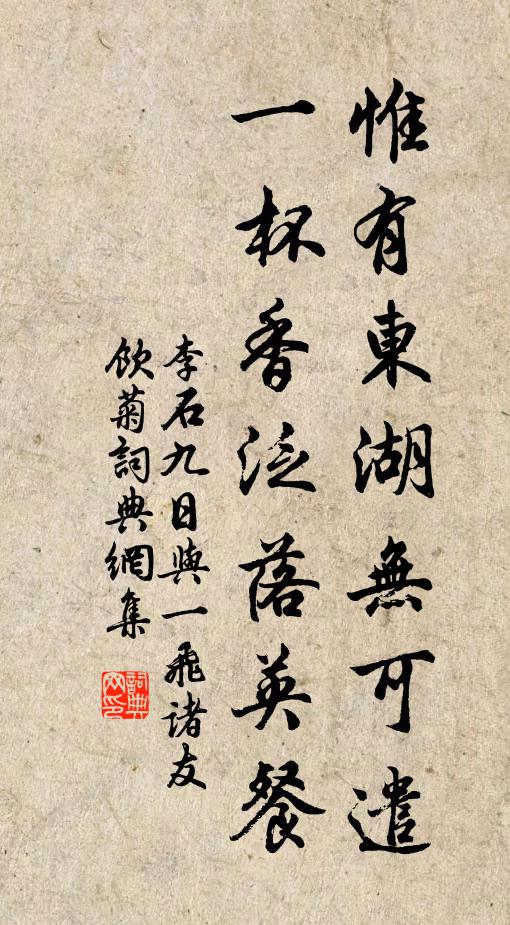 惟有東湖無可遣
一杯香泛落英餐
李石九日與一飛諸友
飲菊詞典網集
詞典網印